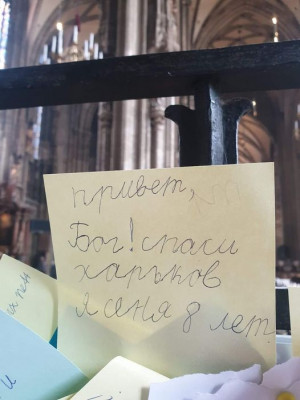 привет,
Бог! спаси
харьков
я сня 8 лет